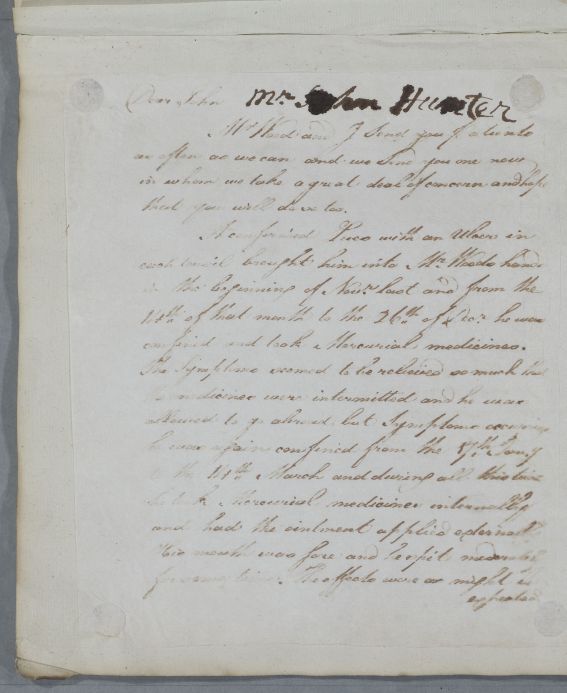 Dear John Mr John Hunter
Mr Wood and I send you Patients
as often as we can and we send you one now
in whom we take a great deal of concern and hope
that you will do so too.
A confirmed Lues with an Ulcer in
each tonsil brought him into Mr Woods hands
in the beginning of Novr last and from the
14th of that month to the 26th of Decr he was
confined and took Mercurial medicines.
The Symptoms seemed to be relieved so much that
the medicines were intermitted and he was
allowed to go abroad but Symptoms occurring
he was again confined from the 17th Jany
to the 14th March and during all this time
he took Mercurial medicines internally
and had the ointment applied externally
His mouth was sore and he spit moderately
for some time. The effects were as might be
expected